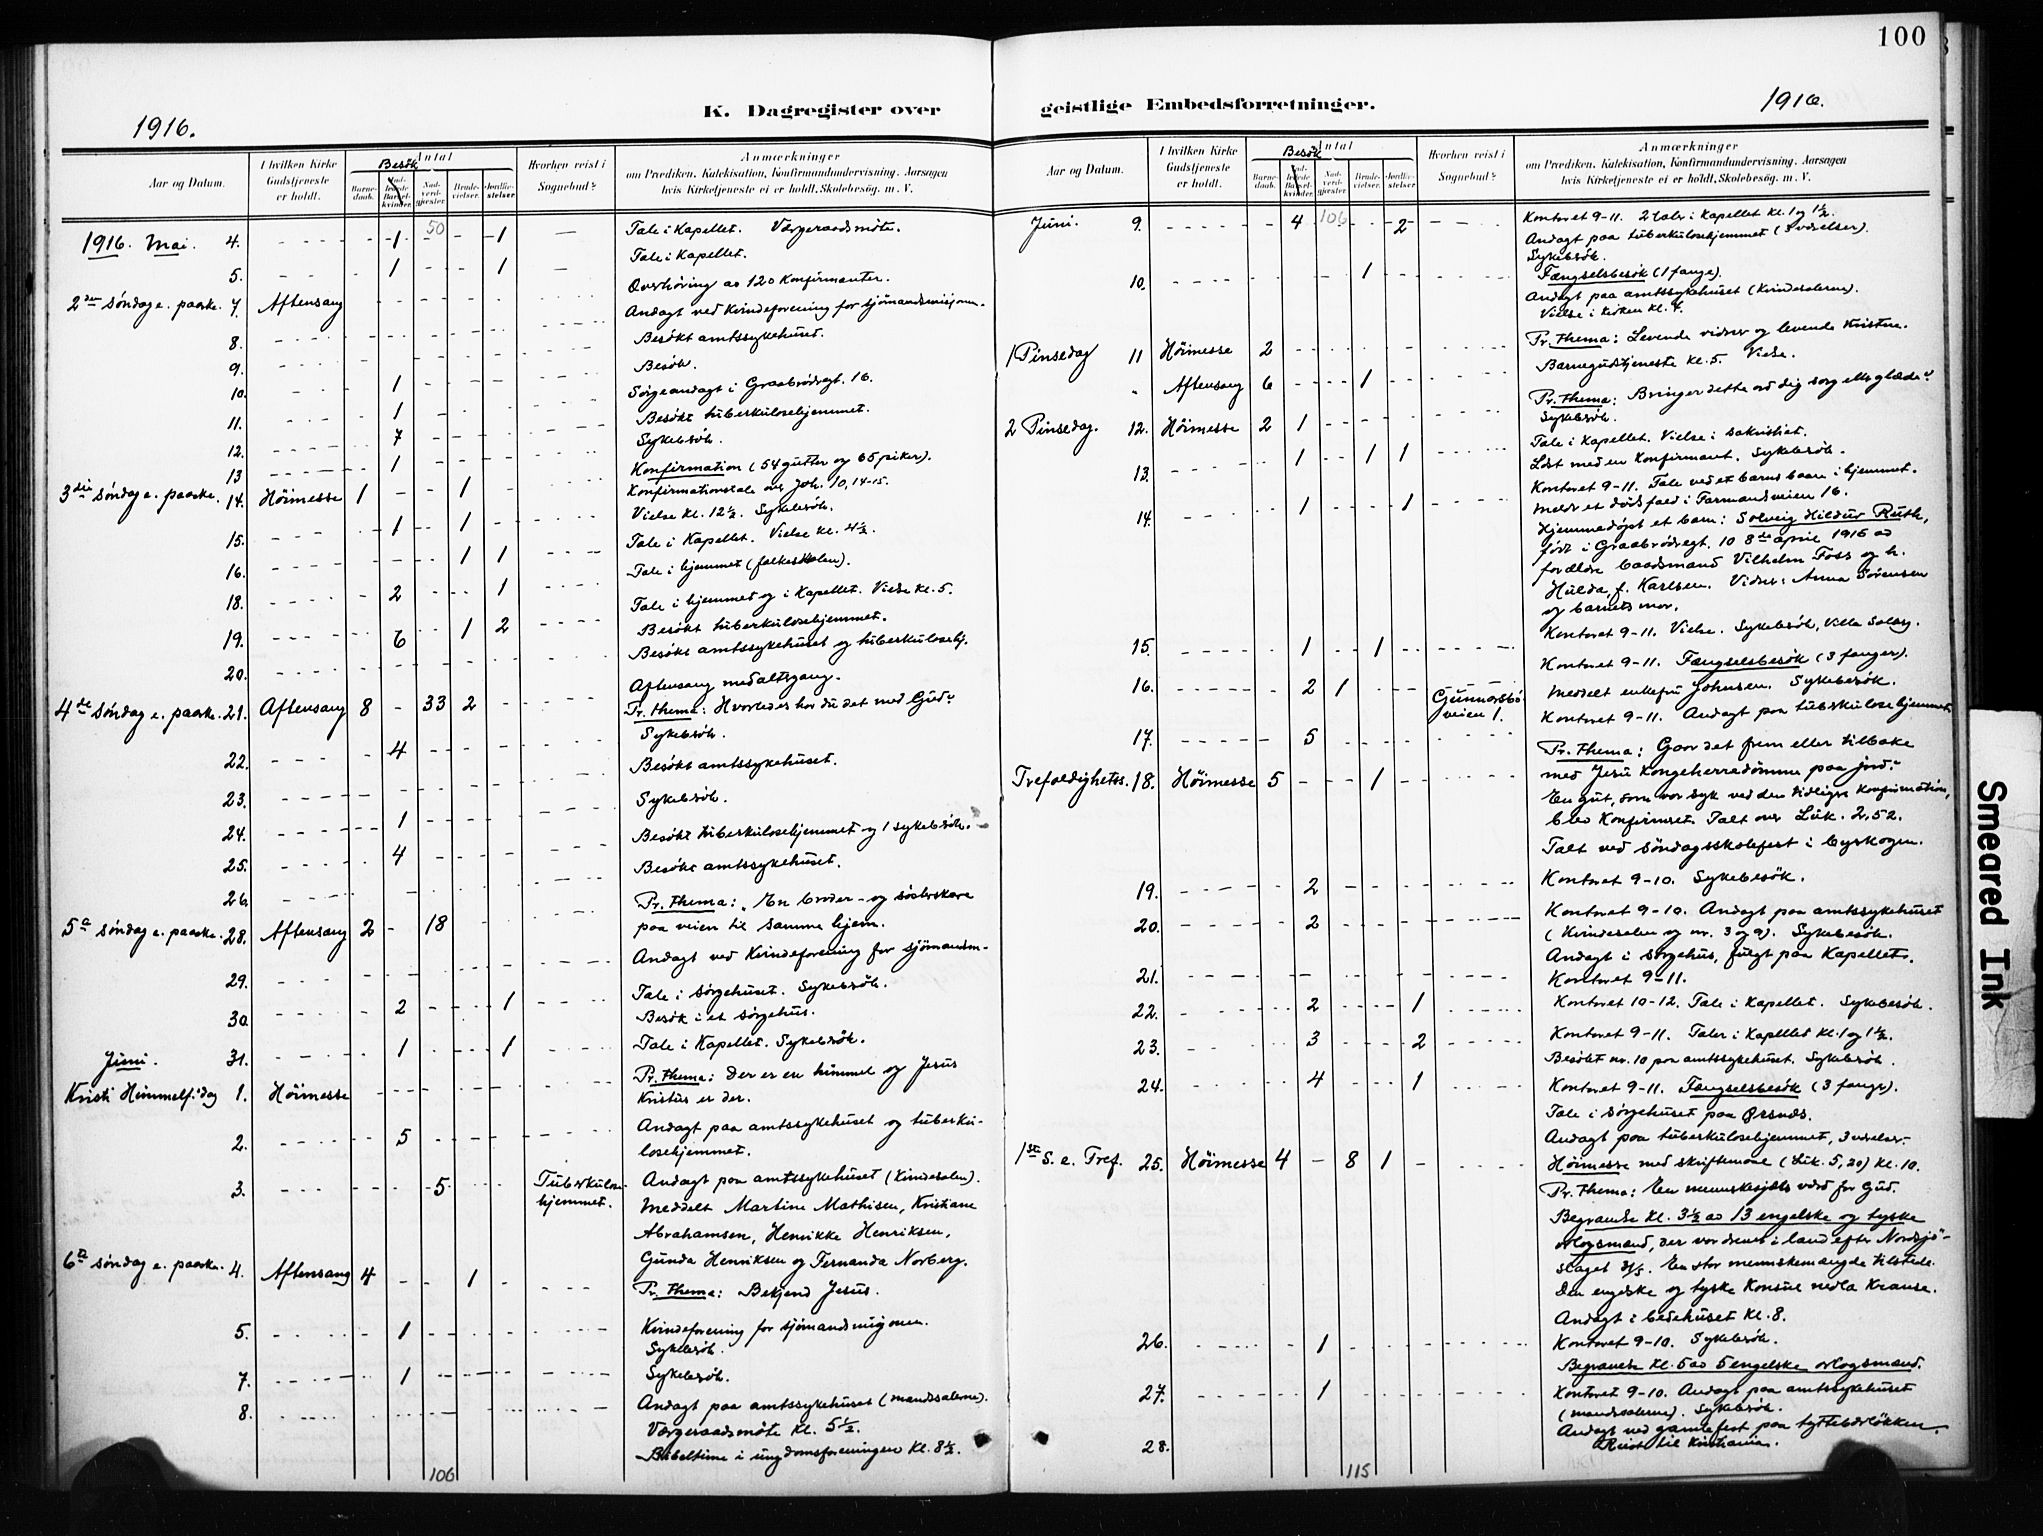 100
K. Dagregister over geistlige Embedsforretninger.
1916.
1916.
Aar og Datum.
I hvilken Kirke Gudstjeneste er holdt.
Antal
Besøk
Barne-daab.
Nad-verd-gjester
Brude-vielser.
Jordfæ-stelser
Hvorhen reist i Sognebud?
Anmærkninger
om Prædiken. Katekisation, Konfirmandundervisning. Aarsagen
hvis Kirketjeneste ei er holdt. Skolebesøg. m. V.
50
1916. Mai. 4. 1 1 Tale i Kapellet. Værgeraadsmöte.
5. 1 1 Tale i Kapellet.
Overhöring av 120 Konfirmanter.
2den söndag e. paaske. 7. Aftensang
Andagt ved Kvindeforening for sjömandsmisjonen.
8. Besökt amtssykehuset.
9. Besök.
10. 1 Sörgeandagt i Graabrödregt. 16.
11. 1 Besökt tuberkulosehjemmet.
12. 7 Sykebesök.
13 1 Konfirmation (54 gutter og 65 piker).
3die söndag e. paaske. 14. Höimesse 1 1 Konfirmationstale over Joh. 10, 14-15.
Vielse kl. 12½. Sykebesök.
15. 1 1 Tale i Kapellet. Vielse kl. 4½.
16. 1 1 Tale i hjemmet (folkeskolen).
18. 2 1 Tale i hjemmet og i Kapellet. Vielse kl. 5.
Besökt tuberkulosehjemmet.
19. 6 1 2 Besökt amtssykehuset og tuberkulosehj.
20.
Aftensang med altergang.
4de söndag e. paaske. 21. Aftensang 8 - 33 2 Pr. thema: Hvorledes har du det med Gud?
Sykebesök.
22. 4 Besökt amtssykehuset.
23. Sykebesök.
24. 1 Besökt tuberkulosehjemmet og 1 sykebesök.
25. 4 Besökt amtssykehuset.
26. Pr. thema: En broder- og söskerskare
5te söndag e. paaske. 28. Aftensang 2 - 18 paa veien til samme hjem.
Andagt ved Kvindeforening for sjömandsm-
29. Tale i sörgehuset. Sykebesök.
30. 2 1 Besök i et sörgehus.
31. 1 1 Tale i Kapellet. Sykebesök.
Juni.
Pr. thema: Der er en himmel og Jesus
Kristi Himmelf. dag 1. Höimesse Kristus er der.
Andagt paa amtssykehuset og tuberku-
2. 5 losehjemmet.
3. 5 Tuberkulose-hjemmet. Andagt paa amtssykehuset (Kvindesalen).
Meddelt Martine Mathisen, Kristiane
Abrahamsen, Henrikke Henriksen,
Gunda Henriksen og Fernanda Norberg.
6te söndag e. paaske. 4. Aftensang 4 - - 1 Pr. thema: Bekjend Jesus.
5. 1 Kvindeforening for sjömandsmisjonen.
Sykebesök.
7. 1 Sykebesök.
8. Andagt paa amtssykehuset (mandssalerne).
Værgeraadsmöte kl. 5½.
Bibeltime i ungdomsforeningen kl. 8½.
106
Aar og Datum.
I hvilken Kirke Gudstjeneste er holdt.
Antal
Besøk
Barne-daab.
Nad-verd-gjester
Brude-vielser.
Jordfæ-stelser
Hvorhen reist i Sognebud?
Anmærkninger
om Prædiken. Katekisation, Konfirmandundervisning. Aarsagen
hvis Kirketjeneste ei er holdt. Skolebesøg. m. V.
Juni. 9. 4 106 2 Kontoret 9-11. 2 taler i Kapellet kl. 1 og 1½.
Andagt paa tuberkulosehjemmet (3 værelser).
Sykebesök.
10. 1 Fængselsbesök (1 fange).
Andagt paa amtssykehuset (Kvindesalerne).
Vielse i kirken kl. 4.
1 Pinsedag 11 Höimesse 2 Pr. thema: Levende vidner og levende Kristne.
" Aftensang 6 1 Barnegudstjeneste kl. 5. Vielse.
Pr. thema: Bringer dette ord dig sorg eller glæde?
2 Pinsedag. 12. Höimesse 2 1 Sykebesök.
Tale i Kapellet. Vielse i sakristiet.
13. 1 1 1 Læst med en Konfirmant. Sykebesök.
Kontoret 9-11. Tale ved et barns baare i hjemmet.
14. 1 1 Meldt et dödsfald i Farmandsveien 16.
Hjemmedöpt et barn: Solveig Hildur Ruth,
född i Graabrödregt. 10 8de april 1916 av
forældre baadsmand Vilhelm Foss og h.
Hulda, f. Karlsen. Vidner: Anna Sörensen
og barnets mor.
15. 1 1 Kontoret 9-11. Vielse. Sykebesök, Villa Solberg.
Kontoret 9-11. Fængselsbesök (3 fanger).
16. 2 1 Gunnarsbö-veien 1. Meddelt enkefru Johnsen. Sykebesök.
17. 5 Kontoret 9-11. Andagt paa tuberkulosehjemmet.
Pr. thema: Gaar det frem eller tilbake
Trefoldighetss. 18. Höimesse 5 - - 1 med Jesu Kongeherredömme paa jord?
En gut, som var syk ved den tidligre Konfirmation,
blev Konfirmert. Talt over Luk. 2,52.
Talt ved söndagsskolefest i byskogen.
19. 2 Kontoret 9-10. Sykebesök.
20. 2 Kontoret 9-10. Andagt paa amtssykehuset
(Kvindesalen og nr. 3 og 9). Sykebesök.
Andagt i sörgehus, fulgt paa Kapellet.
21. Kontoret 9-11.
22. 2 1 Kontoret 10-12. Tale i Kapellet. Sykebesök.
23. 3 2 Kontoret 9-11. Taler i Kapellet kl. 1 og 1½.
Besökt nr. 10 paa amtssykehuset. Sykebesök.
24. 4 1 Kontoret 9-11. Fængselsbesök (3 fanger).
Tale i sörgehuset paa Örsnes.
Andagt paa tuberkulosehjemmet, 3 værelser.
1ste S. e. Tref. 25. Höimesse 4 - 8 1 Höimesse med skriftemaal (Luk. 5,20) kl. 10.
Pr. thema: En menneskesjæls værd for Gud.
Begravelse kl. 3½ av 13 engelske og tyske
orlogsmænd, der var drevet i land efter Nordsjö-
slaget 31/5. En stor menneskemængde tilstede.
Den engelske og tyske Konsul nedla Kranse.
Andagt i bedehuset kl. 8.
26. 1 Kontoret 9-10. Sykebesök.
Begravelse kl. 5 av 5 engelske orlogsmænd.
27. 1 Kontoret 9-10. Andagt paa amtssykehuset
(mandssalerne). Sykebesök.
Andagt ved gamlefest paa tyttebærlökken.
28. Reist til Kristiania.
115
Smeared Ink